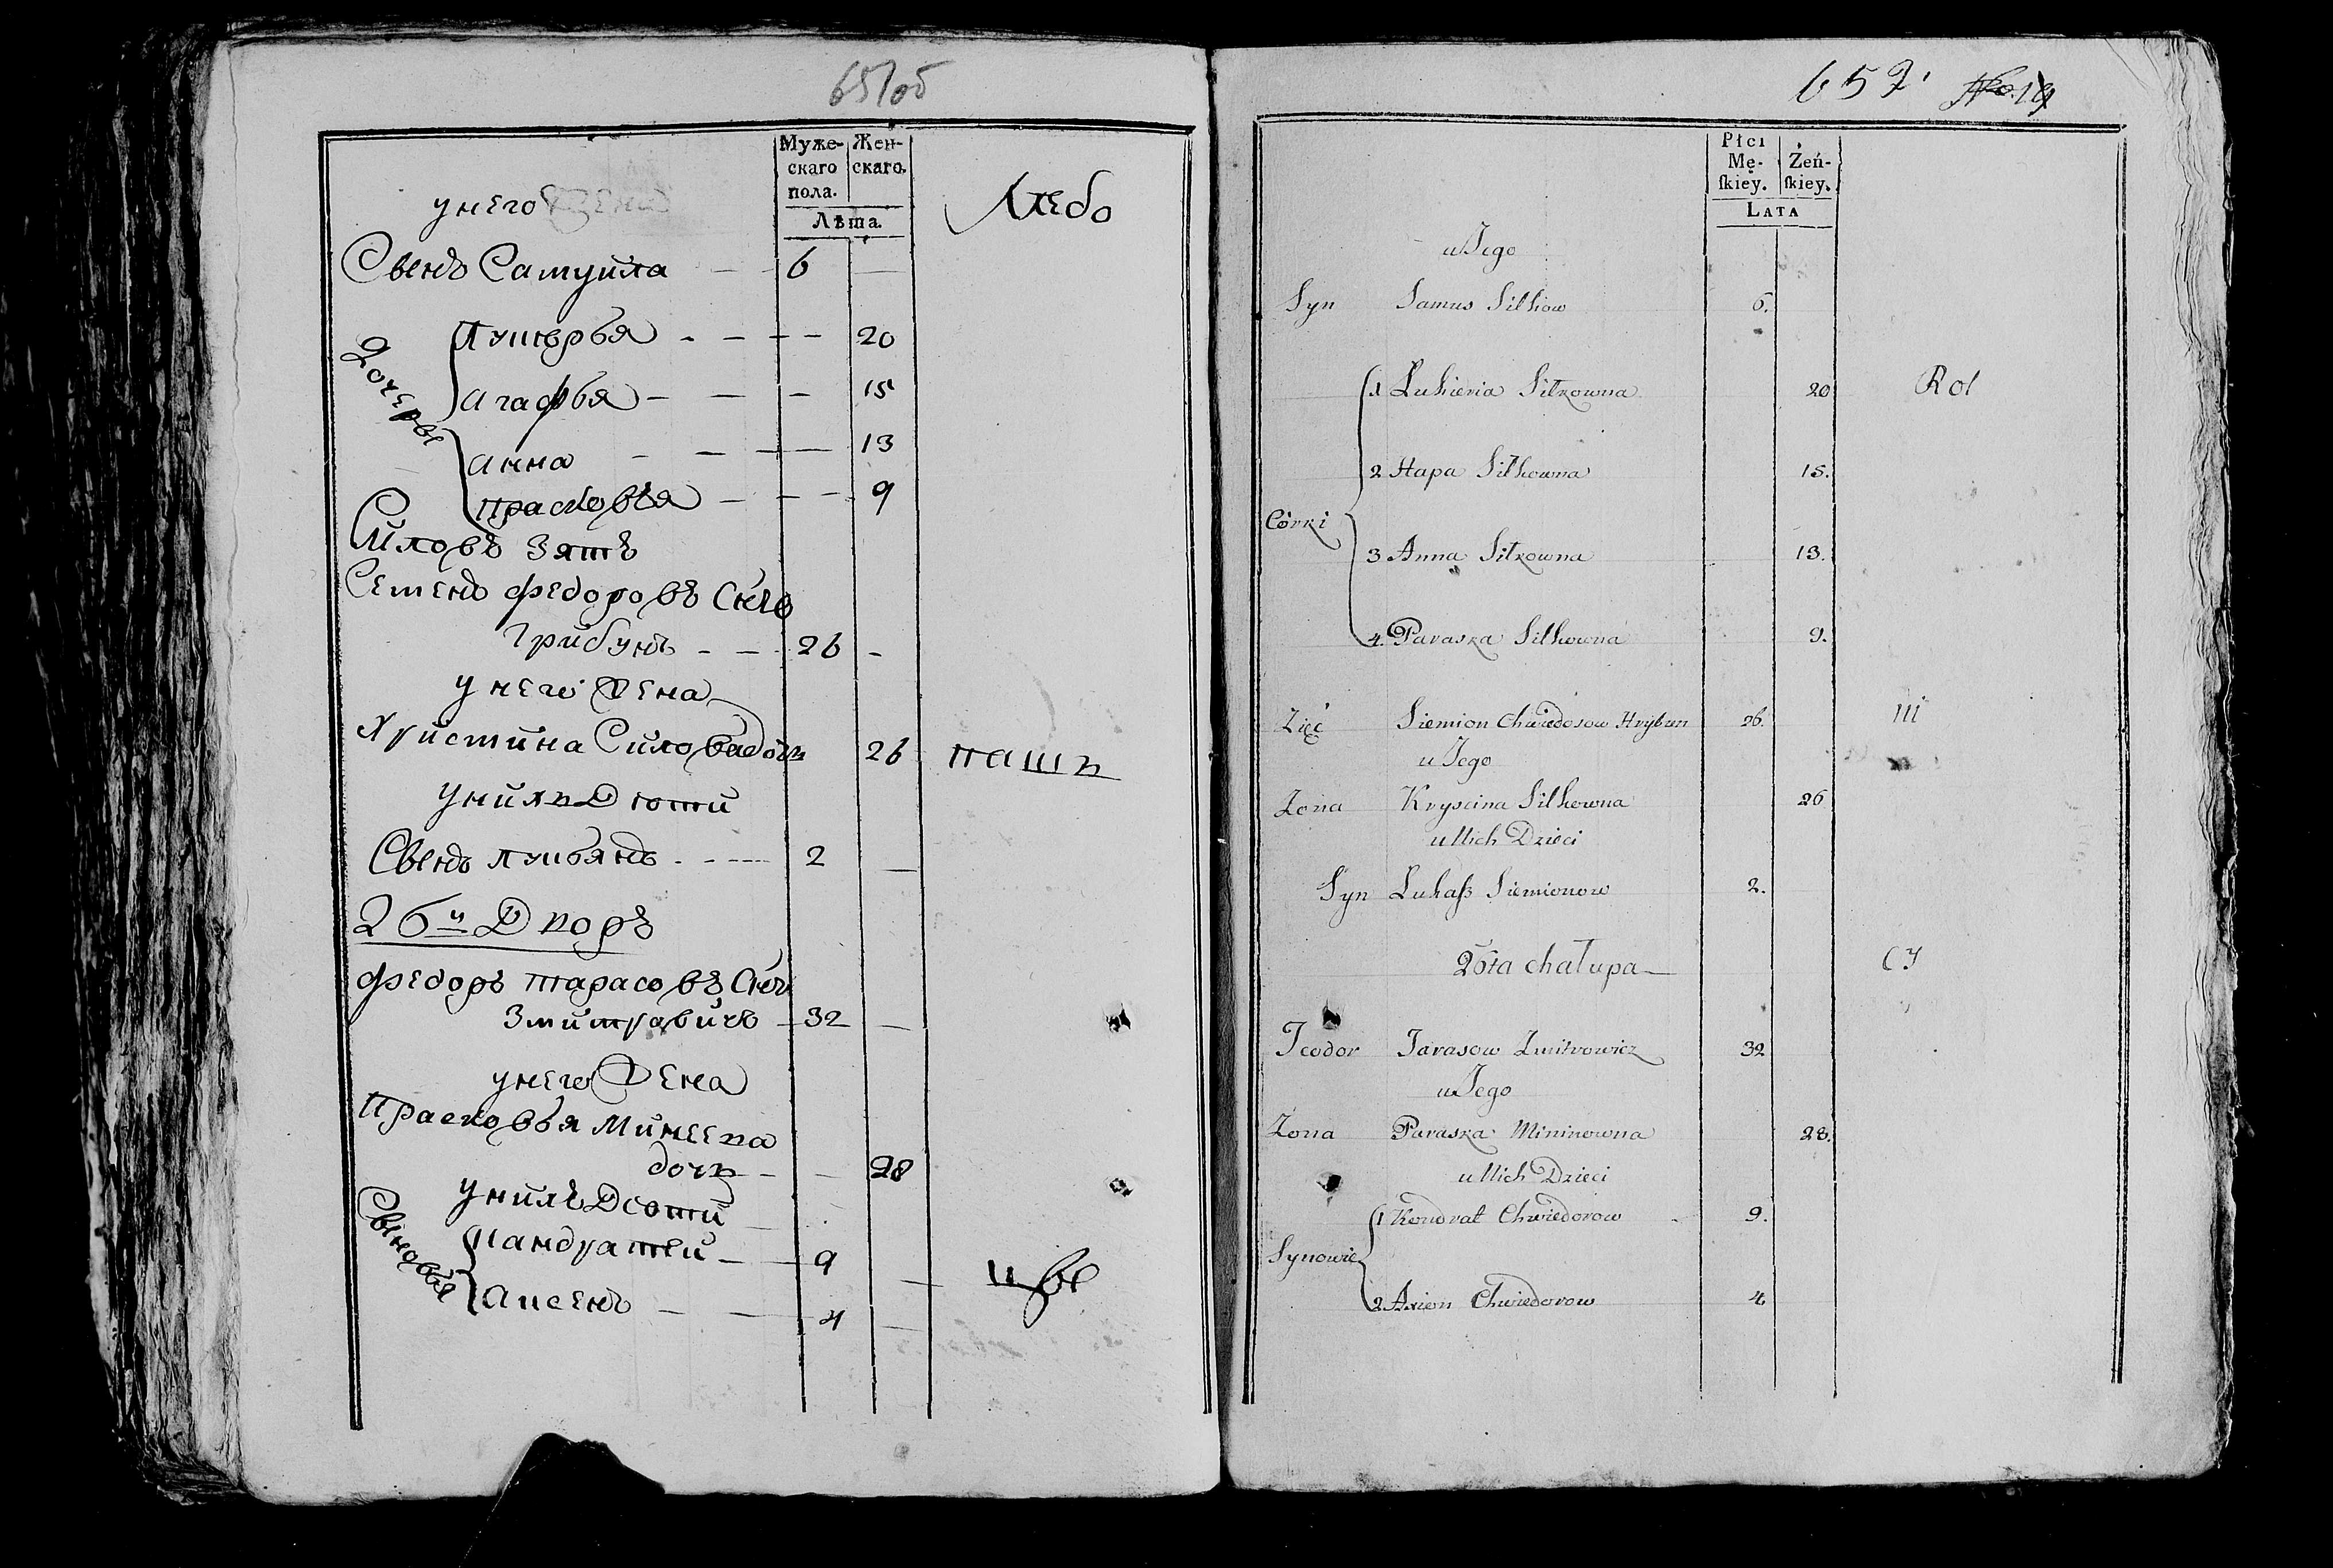 651об
Муже-
скаго
пола.
Жен-
скаго.
Лѣта.
у него
Хлебо
Сынъ Самуйла 6
Дочеры
Лукерья 20
Агафья 15
Анна 13
Прасковья 9
Силовъ Зять
Семенъ Федоровъ Снъ
Грибунъ 26
у него Жена
Христина Силова дочь 26
паш
у нихъ Дети
Сынъ Лукянъ 2
26й Дворъ
Федоръ Тарасовъ Снъ
Змитравичъ 32
у него Жена
Прасковья Минеева
дочь 28
у нихъ Дети
Сыновья
Кандратей 9
Аксенъ 4
цы
652
No. 19
Płci
Mę-
ſkiey.
Żeń-
ſkiey.
LATA
u Jego
Syn Samus Silkow 6.
Córki
1 Lukieria Silkowna 20
Rol
2 Hapa Silkowna 15.
3 Anna Silkowna 13.
4 Paraska Silkowna 9.
Zięć Siemion Chwiedorow Hrybun 26.
ni
u Jego
Zona Kryscina Silkowna 26
u Nich Dzieci
Syn Lukaſz Siemionow 2.
26ta chałupa
cy
Teodor Tarasow Zmitrowicz 32
u Jego
Zona Paraska Mininowna 28.
u Nich Dzieci
Synowie
1 Kondrat Chwiedorow 9.
2 Axien Chwiedorow 4